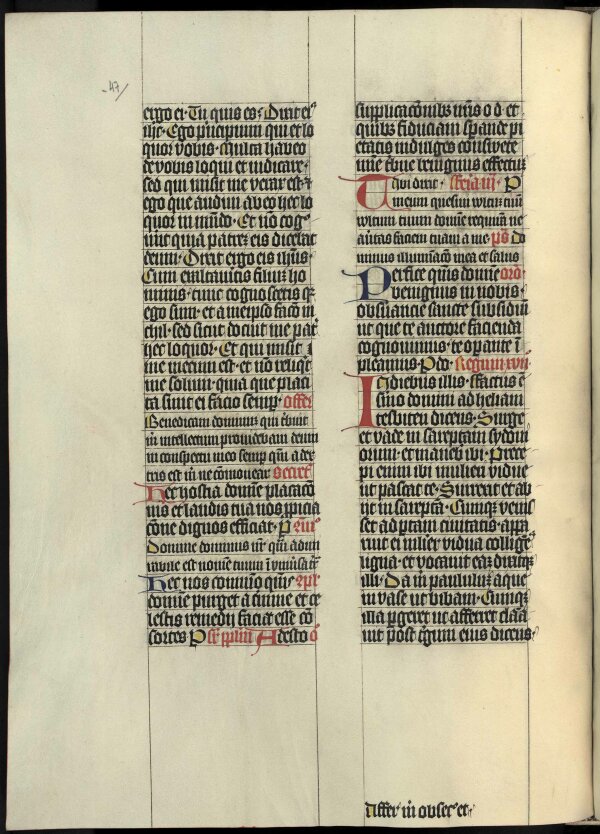 47
ergo ei · Tu quis es · Dixit eis
ihc · Ego principium qui et lo
quor vobis · Multa habeo
de vobis loqui et iudicare ·
sed qui misit me verax est · et
ego que audivi ab eo hec lo
quor in mundo · Et nō cog
nverunt quia patrem eis dicebat
deum · Dixit ergo eis ihus ·
Cum exaltaveritis filium ho
minis · tunc cognoscetis quia
ego sum · et a meipso facio ni
chil · sed sicut docuit me pater
hec loquor · Et qui misit
me mecum est · et nō reliquit
me solum · quia que placi
ta sunt ei facio semper · offer
Benedicam dominum qui tribuit
m intellectum providebam deum
in conspectu meo semper quoniam a dex
tris est m ne cōmovear Secret
Hec hostia domine placacō
nis et laudis tua nos ppicia
cōne dignos efficiat · p̄
Domine dominus noster quam admi
rabile est nomen tuum in universa terra
Hec nos communio quesumus
domine purget a crimine et ce
lestis remedii faciat esse cō
sortes P Sr pplm Adesto
supplicacōnibus nostris o d · et
quibus fiduciam sperande pi
etatis indulges consuete
misericordie tribue benignus effectum
Tibi dixit · Feria iii · P
meum quesivi vultum tuum
vultum tuum domine requiram ne
avertas faciem tuam a me ps Do
minus illuminacio mea et salus
Perfice quesumus domine ora
benignus in nobis
observancie sancte subsidium
ut que te auctore facienda
cognovimus · te operante im
pleamus · Pdo · Regum xvii
In diebus illis · Factus est
sermo domini ad heliam
tesbiten dicens · Surge
et vade in sareptam sydoni
orum · et manebis ibi · Prece
pi enim ibi mulieri vidue
ut pascat te · Surrexit et ab
iit in sarepta · Cumque venis
set ad portam civitatis · appa
ruit ei mulier vidua colligens
ligna · et vocavit eam dixitque
illi · Da michi paululum aque
in vase ut bibam · Cumque
illa pergeret ut afferret clama
vit post tergum eius dicens ·
Affer michi obsecro et